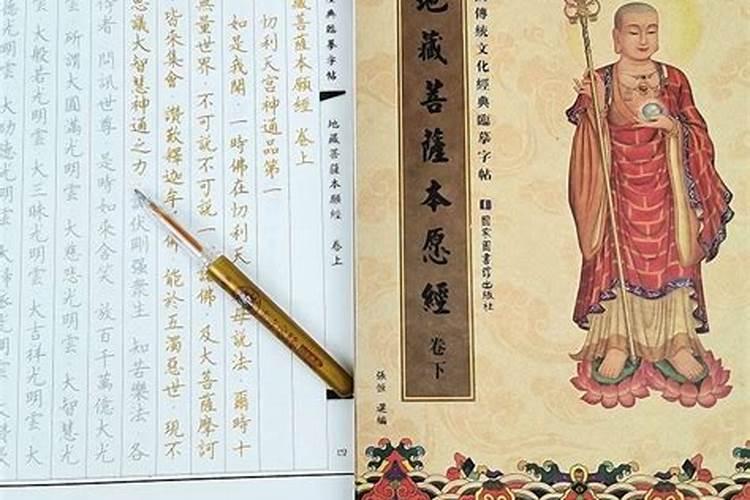 傳統文化經典臨摹字帖
國家圖書館出版社
地藏菩薩本愿經 卷下
張恒 選編
經典臨摹字帖
地藏菩薩本願經 卷上
四
藏菩薩本願經 卷上
忉利天宮神通品第一
如是我聞 一時佛在忉利天 母説法 爾時十
無量世界 不可説不可説一 諸佛 及大菩薩摩訶
皆來集會 讚歎釋迦牟 佛 能於五濁惡世 現不
思議大智慧神通之力 伏剛强衆生 知苦樂法 各
侍者 問訊世尊 是時如來含笑 放百千萬億大光
雲 所謂大圓滿光明雲 大慈悲光明雲 大智慧光
雲 大般若光明雲 大三昧光明雲 大吉祥光明雲 大
德光明雲 大功德光明雲 大歸依光明雲 大讚